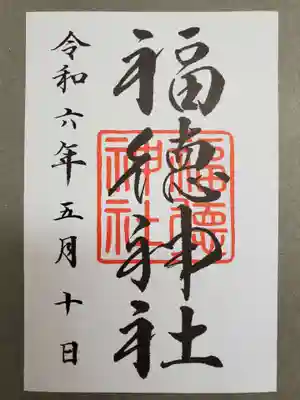 福徳神社
令和六年五月十日
福德神社